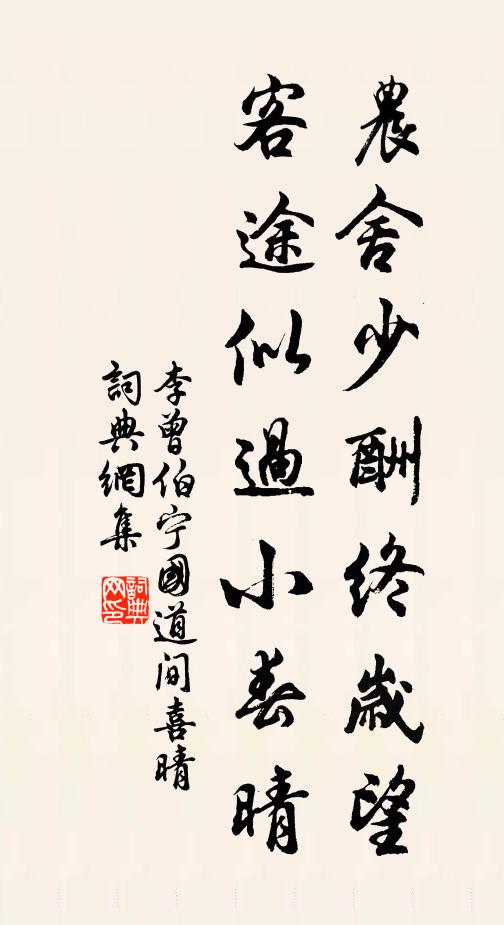 農舍少酬終歲望
客途似過小春晴
李曾伯宁國道间喜晴
詞典網集
詞典网印